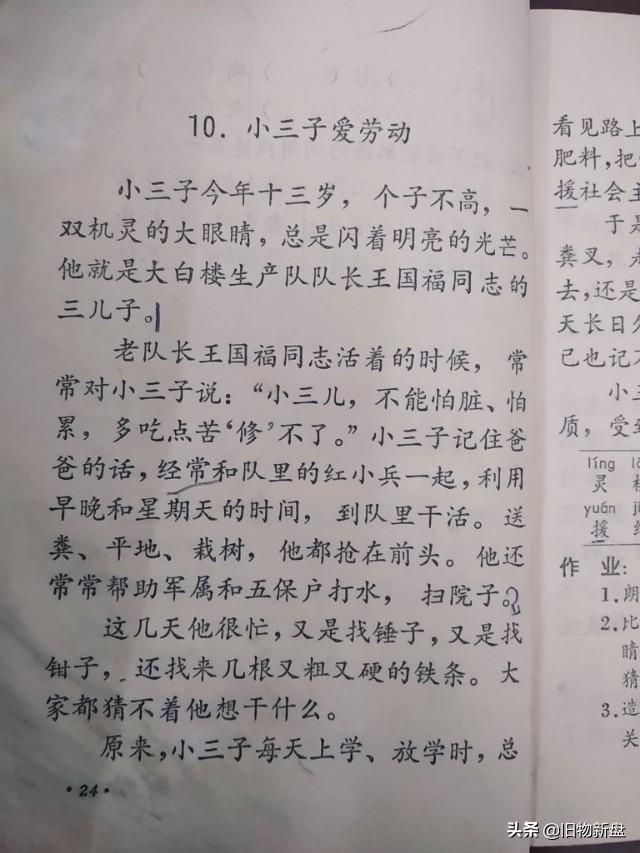 10. 小三子爱劳动
小三子今年十三岁，个子不高，一
双机灵的大眼睛，总是闪着明亮的光芒。
他就是大白楼生产队队长王国福同志的
三儿子。
老队长王国福同志活着的时候，常
常对小三子说：“小三儿，不能怕脏、怕
累，多吃点苦‘修’不了。”小三子记住爸
爸的话，经常和队里的红小兵一起，利用
早晚和星期天的时间，到队里干活。送
粪、平地、栽树，他都抢在前头。他还
常常帮助军属和五保户打水，扫院子。
这几天他很忙，又是找锤子，又是找
钳子，还找来几根又粗又硬的铁条。大
家都猜不着他想干什么。
原来，小三子每天上学、放学时，总
·24·
看见路上
肥料，把
援社会主
于是
粪叉，
去，还是
天长日久
己也记不
小三
质，受到
líng
灵
yuán
援
作 业：
1.朗
2.比
睛
猜
3.造
关
头条 @旧物新盘